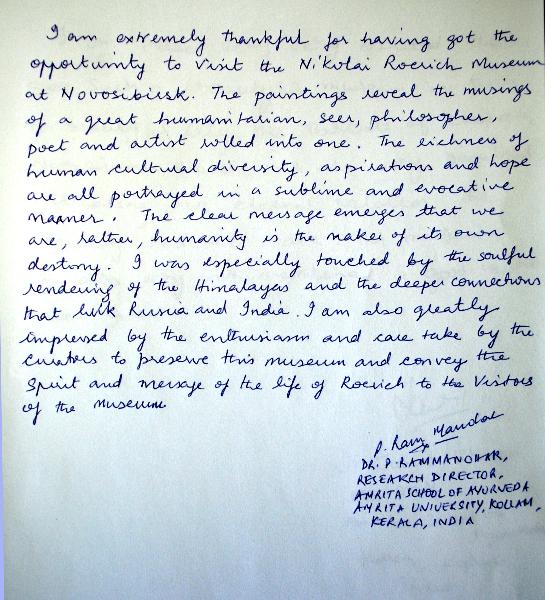 I am extremely thankful for having got the
opportunity to visit the Nikolai Roerich Museum
at Novosibirsk. The paintings reveal the musings
of a great humanitarian, seer, philosopher,
poet and artist rolled into one. The richness of
human cultural diversity, aspirations and hope
are all portrayed in a sublime and evocative
manner. The clear message emerges that we
are, rather, humanity is the maker of its own
destiny. I was especially touched by the soulful
rendering of the Himalayas and the deeper connections
that link Russia and India. I am also greatly
impressed by the enthusiasm and care take by the
curators to preserve this museum and convey the
Spirit and message of the life of Roerich to the Visitors
of the museum
P. Ram Manohar
DR. P. RAMMANOHAR,
RESEARCH DIRECTOR,
AMRITA SCHOOL OF AYURVEDA
AMRITA UNIVERSITY, KOLLAM,
KERALA, INDIA